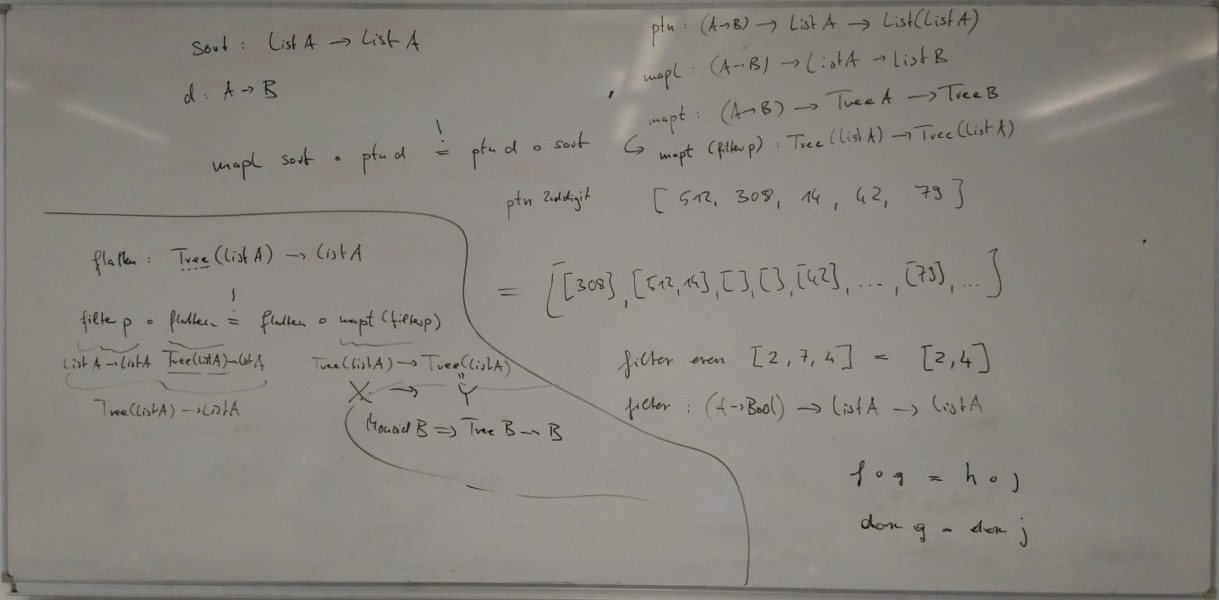 sort : List A → List A
d : A → B
mapl sort ∘ ptn d =! ptn d ∘ sort
ptn : (A→B) → List A → List(List A)
mapl : (A→B) → List A → List B
mapt : (A→B) → Tree A → Tree B
↪ mapt (filter p) : Tree (List A) → Tree (List A)
ptn 2nd digit [ 512, 308, 14, 42, 79 ]
= [[308], [512,14], [ ], [ ], [42], ... , [79], ... ]
filter even [2, 7, 4] = [2,4]
filter : (A→Bool) → List A → List A
f ∘ g = h ∘ j
dom g = dom j
flatten : Tree (List A) → List A
filter p ∘ flatten =! flatten ∘ mapt (filter p)
List A → List A Tree(List A) → List A Tree (List A) → Tree (List A)
Tree (List A) → List A
X → Y
Monoid B ⇒ Tree B → B